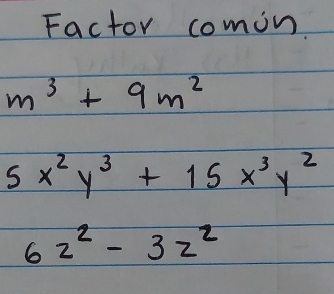 Factor común.
m³ + 9m²
5x²y³ + 15x³y²
6z² - 3z²